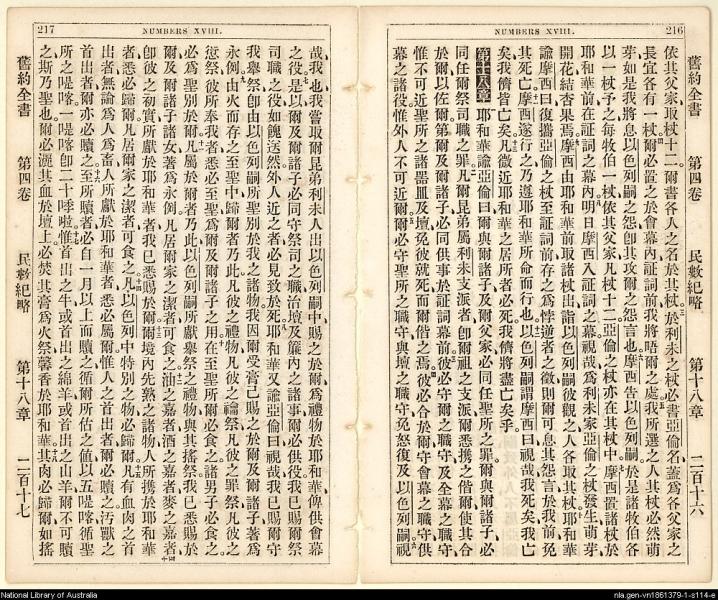 216
NUMBERS XVIII.
舊約全書 第四卷 民數紀略 第十八章 二百十六
依其父家取杖十二爾書各人之名於其杖於利未之杖必書亞倫名蓋爲各父家之
長宜各有一杖爾必置之於會幕內証詞前我將晤爾之處我所選之人其杖必然萌
芽如是我將息以色列嗣之怨卽其攻爾之怨言也摩西告以色列嗣於是諸牧伯各
以一杖予之每牧伯一杖依其父家凡杖十二亞倫之杖亦在其杖中摩西置諸杖於
耶和華前在証詞之幕內明日摩西入証詞之幕視哉爲利未家亞倫之杖發生萌芽
開花結杏果焉摩西由耶和華前取諸杖出詣以色列嗣彼觀之人各取其杖耶和華
諭摩西曰復攜亞倫之杖至証詞前存之爲悖逆者之徵則爾可息其怨言於我前免
其死亡摩西遂行之乃遵耶和華所命而行也以色列嗣謂摩西曰視哉我死矣我亡
矣我儕皆亡矣凡微近耶和華之居所者必死我儕將盡亡矣乎
第十八章 耶和華諭亞倫曰爾與爾諸子及爾父家必同任聖所之罪爾與爾諸子必
同任爾祭司職之罪凡爾昆弟屬利未支派者卽爾祖之支派爾悉携之偕爾使其合
於爾以佐爾第爾及爾諸子必同供事於証詞幕前彼必守爾之職守及全幕之職守
惟不可近聖所之諸器皿及壇免彼就死而爾偕之焉彼必合於爾守會幕之職守供
幕之諸役惟外人不可近爾爾必守聖所之職守與壇之職守免怒復及以色列嗣視
217
NUMBERS XVIII.
哉我也我嘗取爾昆弟利未人出以色列嗣中賜之於爾爲禮物於耶和華俾供會幕
之役是以爾及爾諸子必同守祭司之職治壇及簾內之諸事爾必供役我已賜爾祭
司職之役如餽送然外人近之者必見致於死耶和華又諭亞倫曰視哉我已賜爾守
我舉祭卽由以色列嗣所聖別於我之諸物我因爾受膏已賜之於爾及爾諸子著爲
永例由火而存之至聖中歸爾者乃此凡彼之禮物凡彼之禴祭凡彼之罪祭凡彼之
愆祭彼所奉我者悉必至聖爲爾及爾諸子之用在至聖所爾必食之諸男子必食之
必爲聖別於爾凡屬於爾者乃此以色列嗣所獻舉祭之禮物與其搖祭我已悉賜於
爾及爾諸子諸女著爲永例凡居爾家之潔者可食之油之嘉者酒之嘉者麥之嘉者
卽彼之初實所獻於耶和華者我已悉賜於爾爾境內先熟之諸物人所携於耶和華
者悉必歸爾凡居爾家之潔者可食之凡以色列中特別之物必歸爾凡有血肉之首
出者無論爲人爲畜人所獻於耶和華者悉必屬爾惟人之首出者爾必贖之汚獸之
首出者爾亦必贖之至所贖者必自一月以上而贖之循爾所估之值以五㖷喀循聖
所之㖷喀一㖷喀卽二十㖷啦惟首出之牛或首出之綿羊或首出之山羊爾不可贖
之斯乃聖也爾必灑其血於壇上必焚其膏爲火祭馨香於耶和華其肉必歸爾如搖
舊約全書 第四卷 民數紀略 第十八章 二百十七
National Library of Australia
nla.gen-vn1861379-1-s114-e